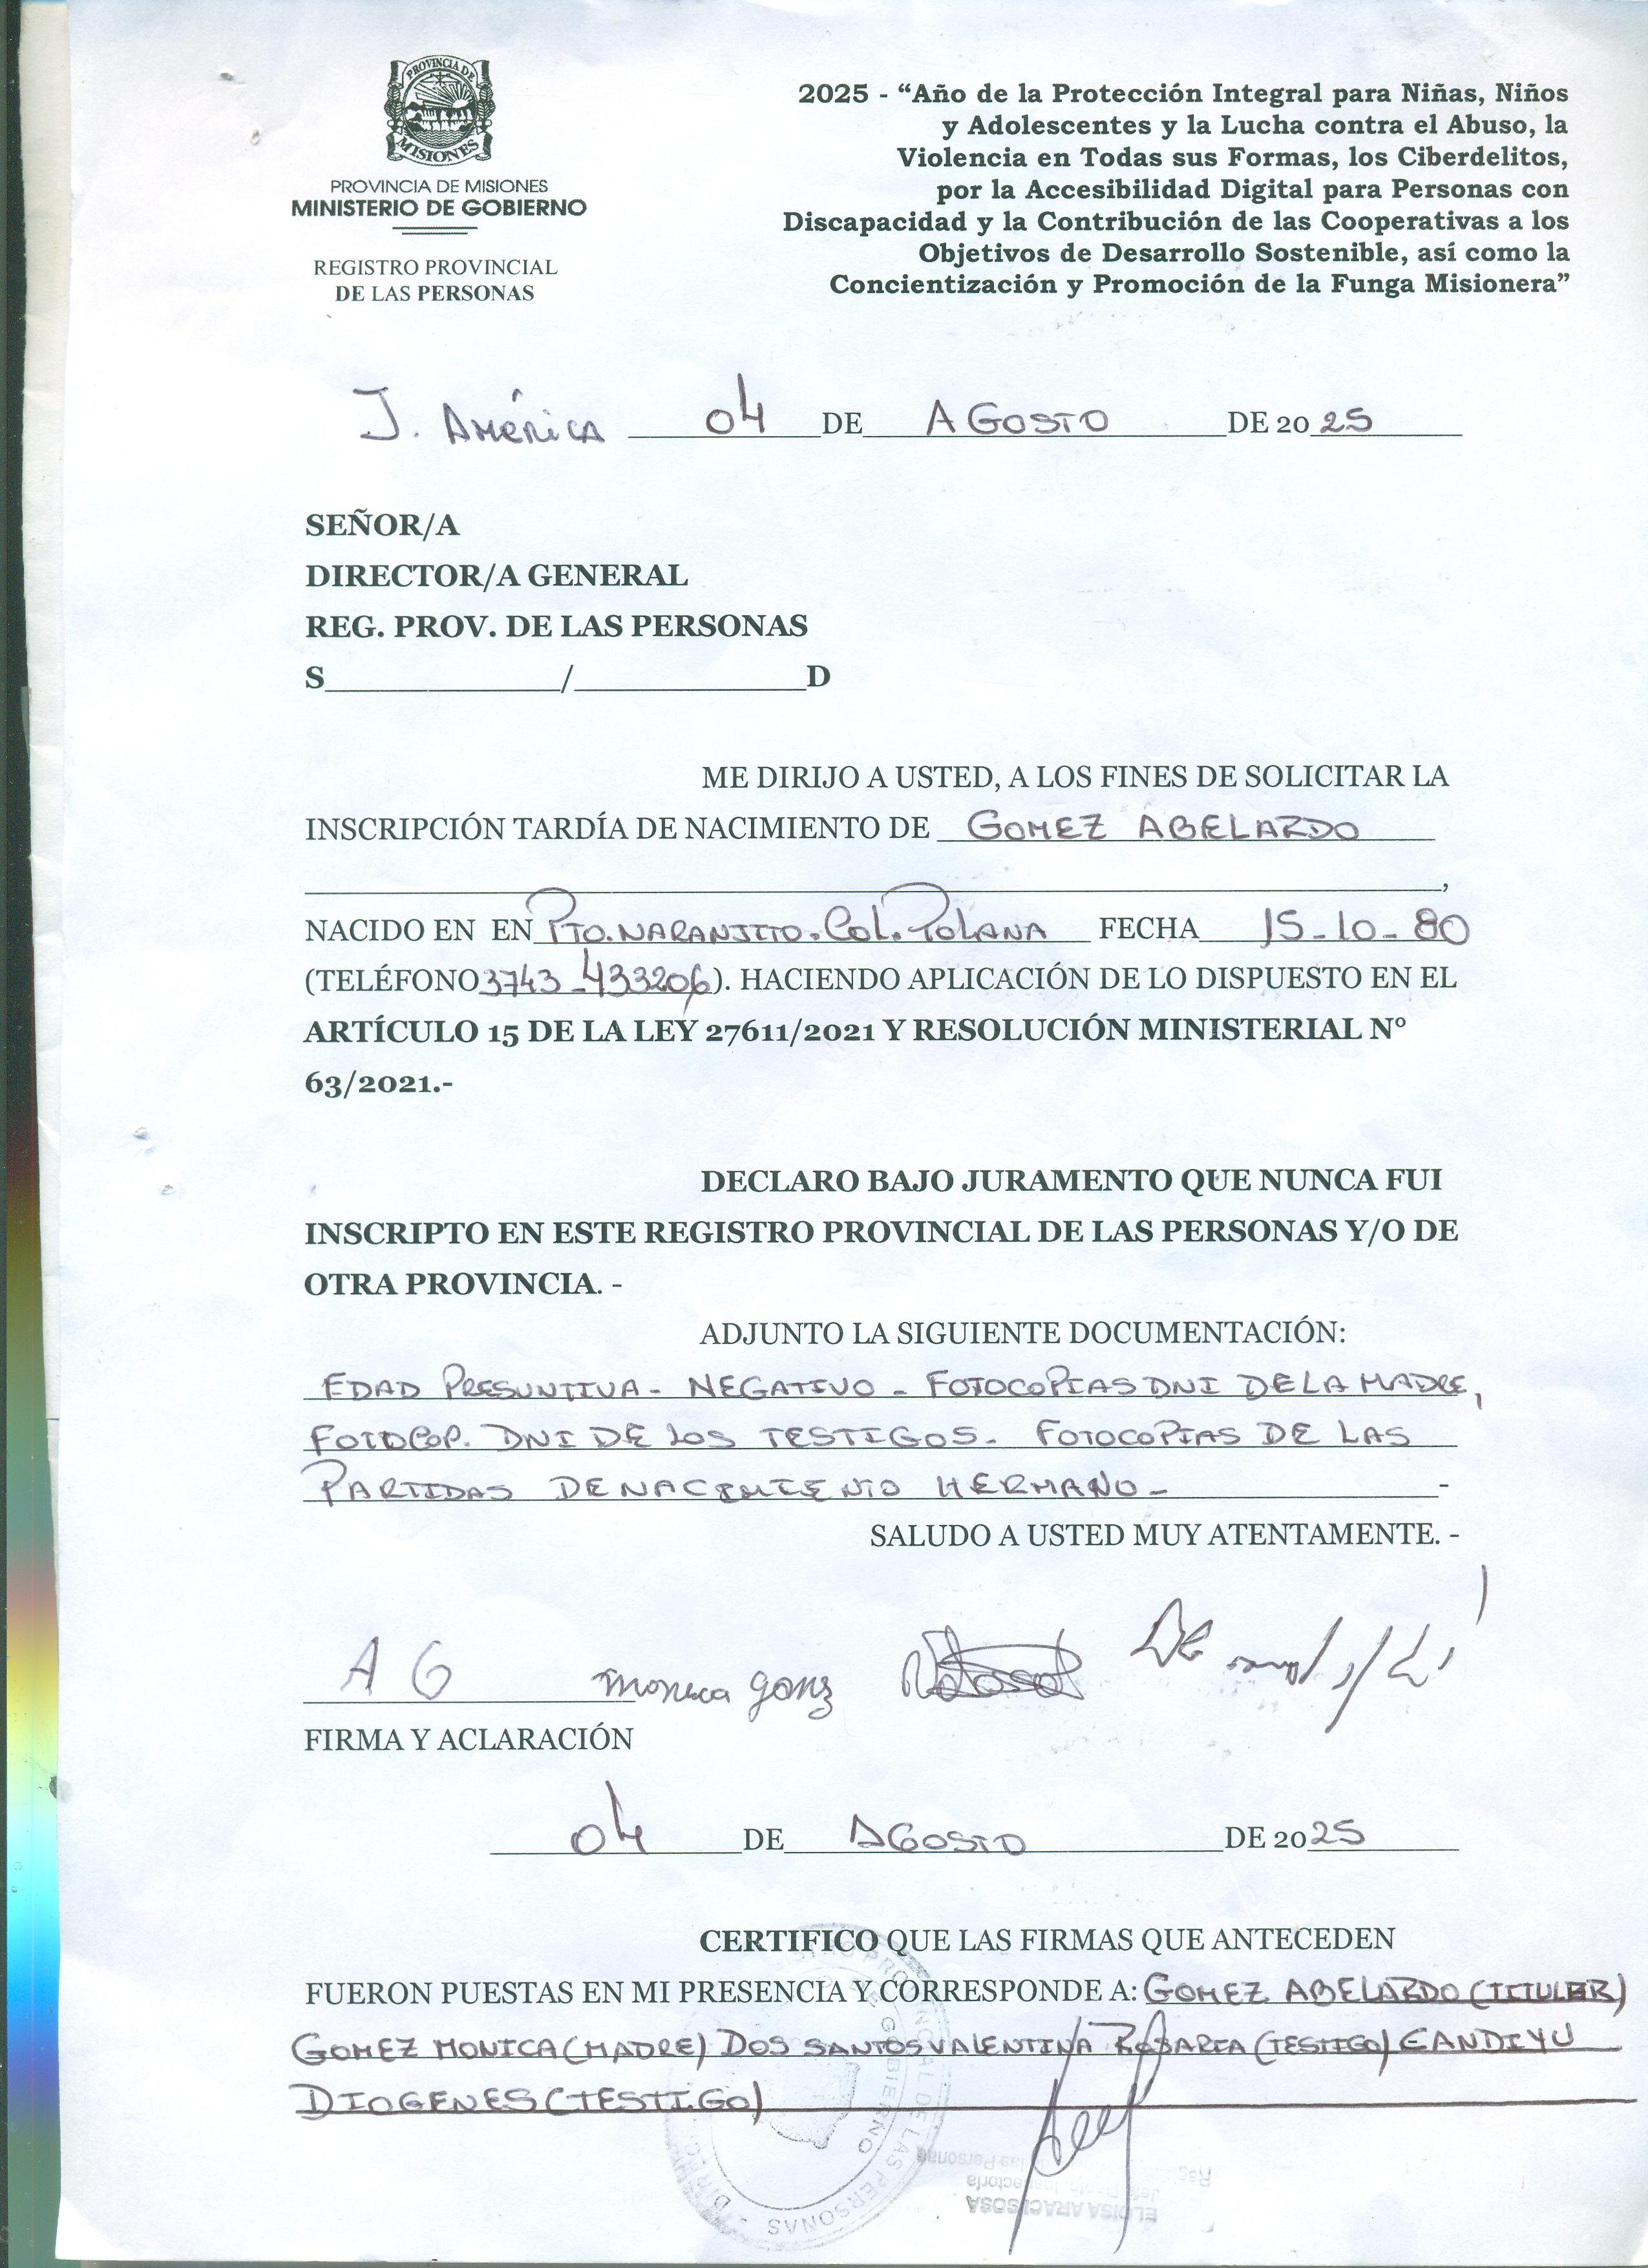 PROVINCIA DE
MISIONES
PROVINCIA DE MISIONES
MINISTERIO DE GOBIERNO
REGISTRO PROVINCIAL
DE LAS PERSONAS
2025 - “Año de la Protección Integral para Niñas, Niños
y Adolescentes y la Lucha contra el Abuso, la
Violencia en Todas sus Formas, los Ciberdelitos,
por la Accesibilidad Digital para Personas con
Discapacidad y la Contribución de las Cooperativas a los
Objetivos de Desarrollo Sostenible, así como la
Concientización y Promoción de la Funga Misionera”
J. América 04 DE AGOSTO DE 2025
SEÑOR/A
DIRECTOR/A GENERAL
REG. PROV. DE LAS PERSONAS
S____________/____________D
ME DIRIJO A USTED, A LOS FINES DE SOLICITAR LA
INSCRIPCIÓN TARDÍA DE NACIMIENTO DE GOMEZ ABELARDO
,
NACIDO EN EN PTO. NARANJITO. Col. POLANA FECHA 15-10-80
(TELÉFONO 3743-433206). HACIENDO APLICACIÓN DE LO DISPUESTO EN EL
ARTÍCULO 15 DE LA LEY 27611/2021 Y RESOLUCIÓN MINISTERIAL Nº
63/2021.-
DECLARO BAJO JURAMENTO QUE NUNCA FUI
INSCRIPTO EN ESTE REGISTRO PROVINCIAL DE LAS PERSONAS Y/O DE
OTRA PROVINCIA. -
ADJUNTO LA SIGUIENTE DOCUMENTACIÓN:
EDAD PRESUNTIVA - NEGATIVO - FOTOCOPIAS DNI DE LA MADRE,
FOTOCOP. DNI DE LOS TESTIGOS - FOTOCOPIAS DE LAS
PARTIDAS DE NACIMIENTO HERMANO - -
SALUDO A USTED MUY ATENTAMENTE. -
A G monica gonz
FIRMA Y ACLARACIÓN
04 DE AGOSTO DE 2025
CERTIFICO QUE LAS FIRMAS QUE ANTECEDEN
FUERON PUESTAS EN MI PRESENCIA Y CORRESPONDE A: GOMEZ ABELARDO (TITULAR)
GOMEZ MONICA (MADRE) DOS SANTOS VALENTINA ROSARIA (TESTIGO) CANDIYU
DIOGENES (TESTIGO)